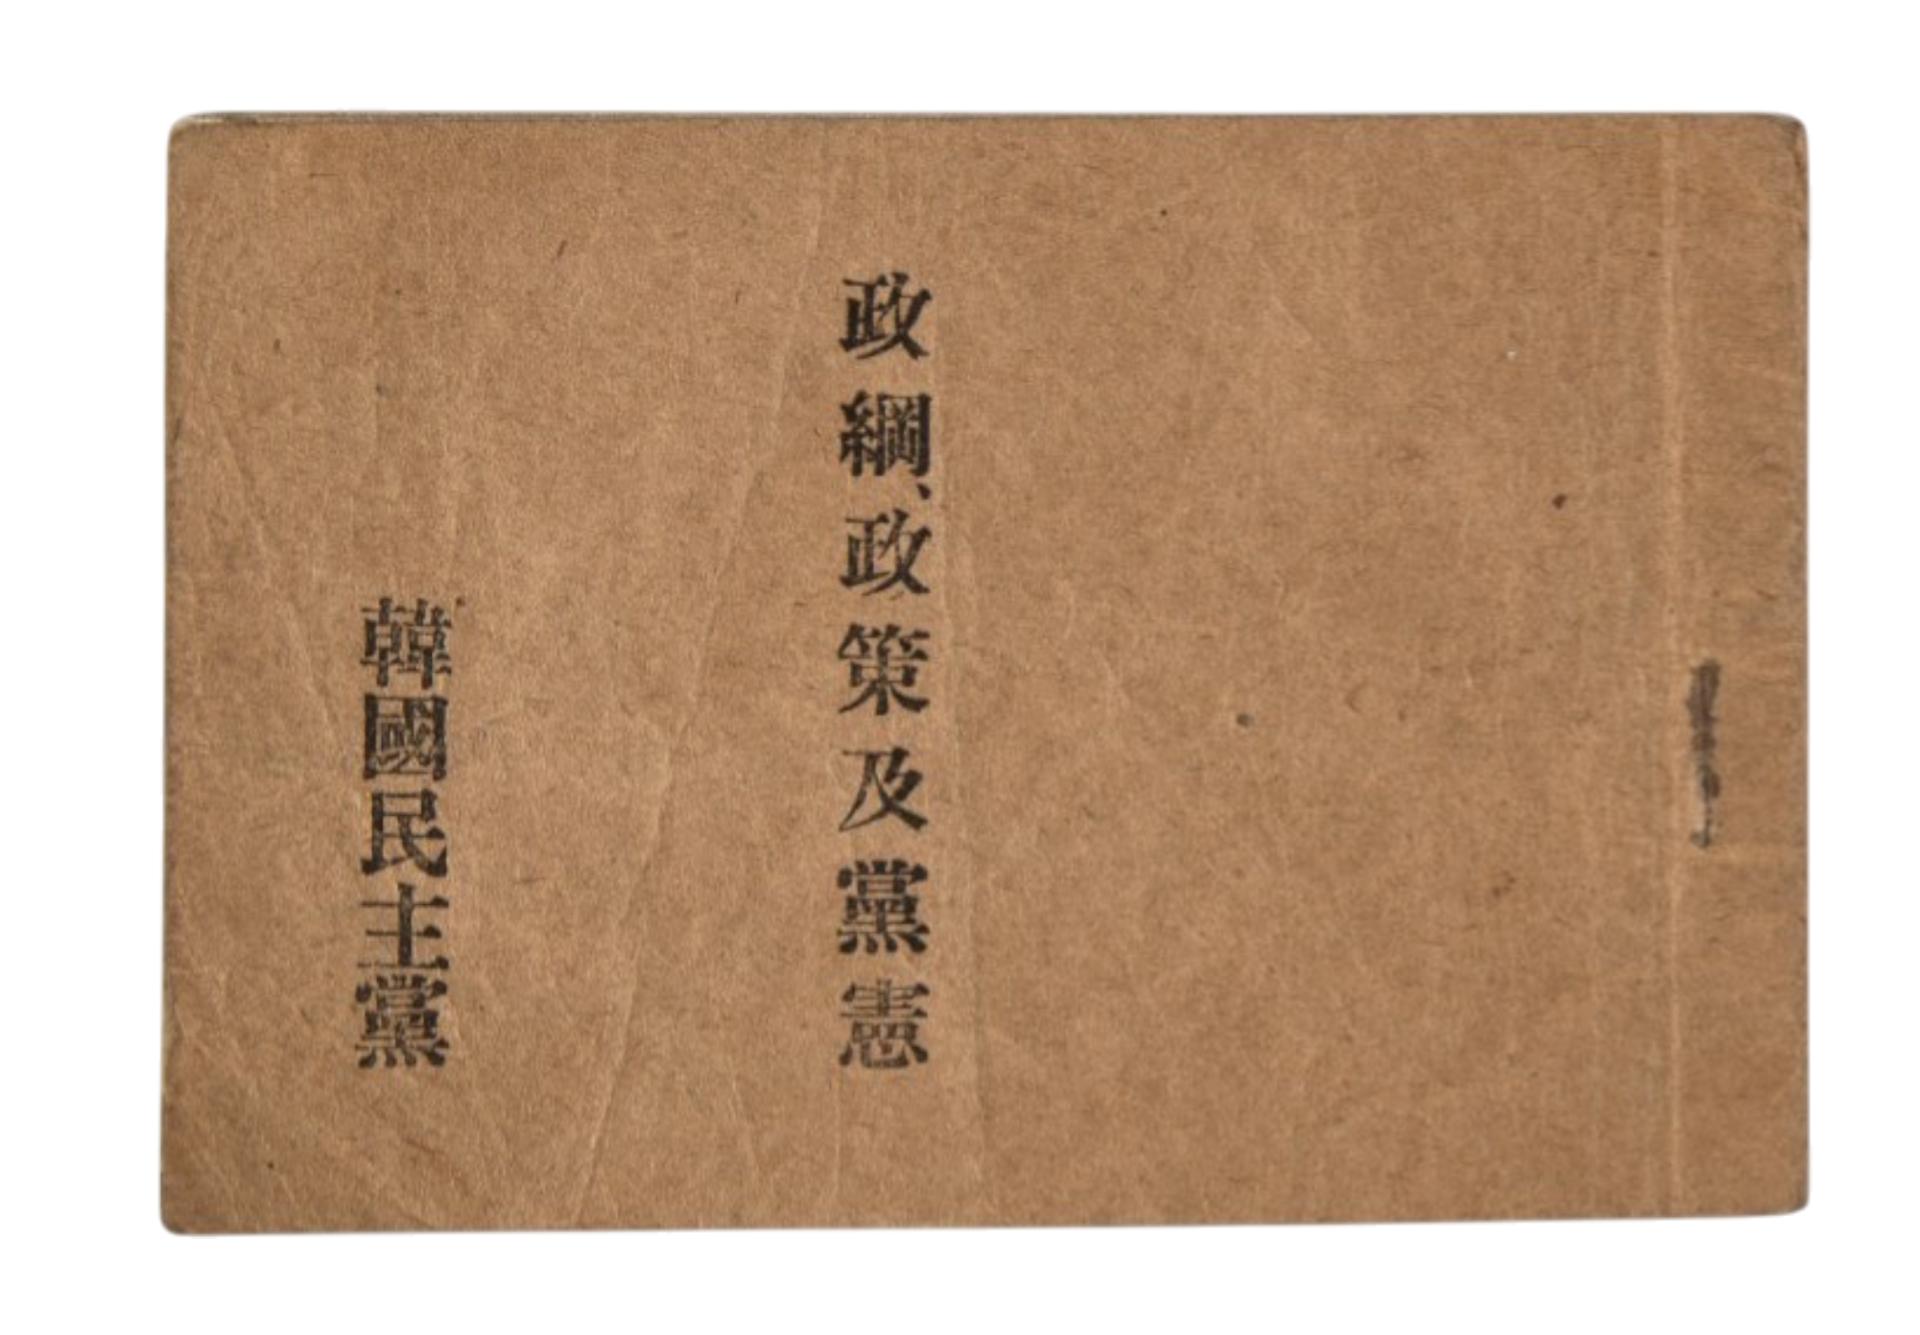 政綱、政策及黨憲
韓國民主黨